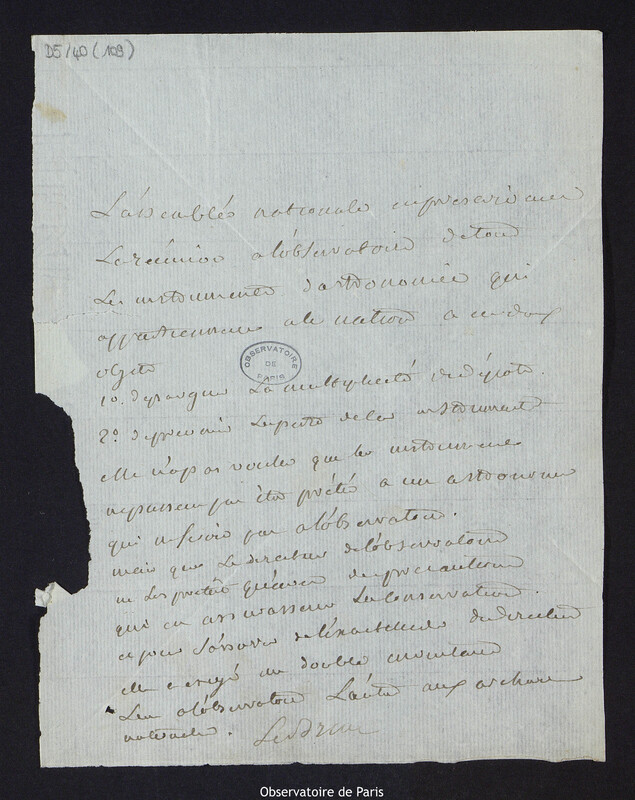 D5/40 (109)
L'assemblée nationale en prescrivant
La réunion a l'observatoire de tous
Les instruments d'astronomie qui
appartiennent a la nation a eu deux
objets
1o. d'epargner La multiplicité des dépots.
2o. de prevenir La perte de ces instruments
elle n'a pas voulu que les instruments
ne pussent pas être prêtés a un astronome
qui ne seroit pas a l'observatoire.
mais que Le directeur de l'observatoire
ne Les prêtât qu'avec des precautions
qui en assurassent La conservation.
et pour s'assurer de l'exactitude du directeur
elle a exigé un double inventaire
L'un a l'observatoire L'autre aux archives
nationales.
OBSERVATOIRE
DE
PARIS
Observatoire de Paris